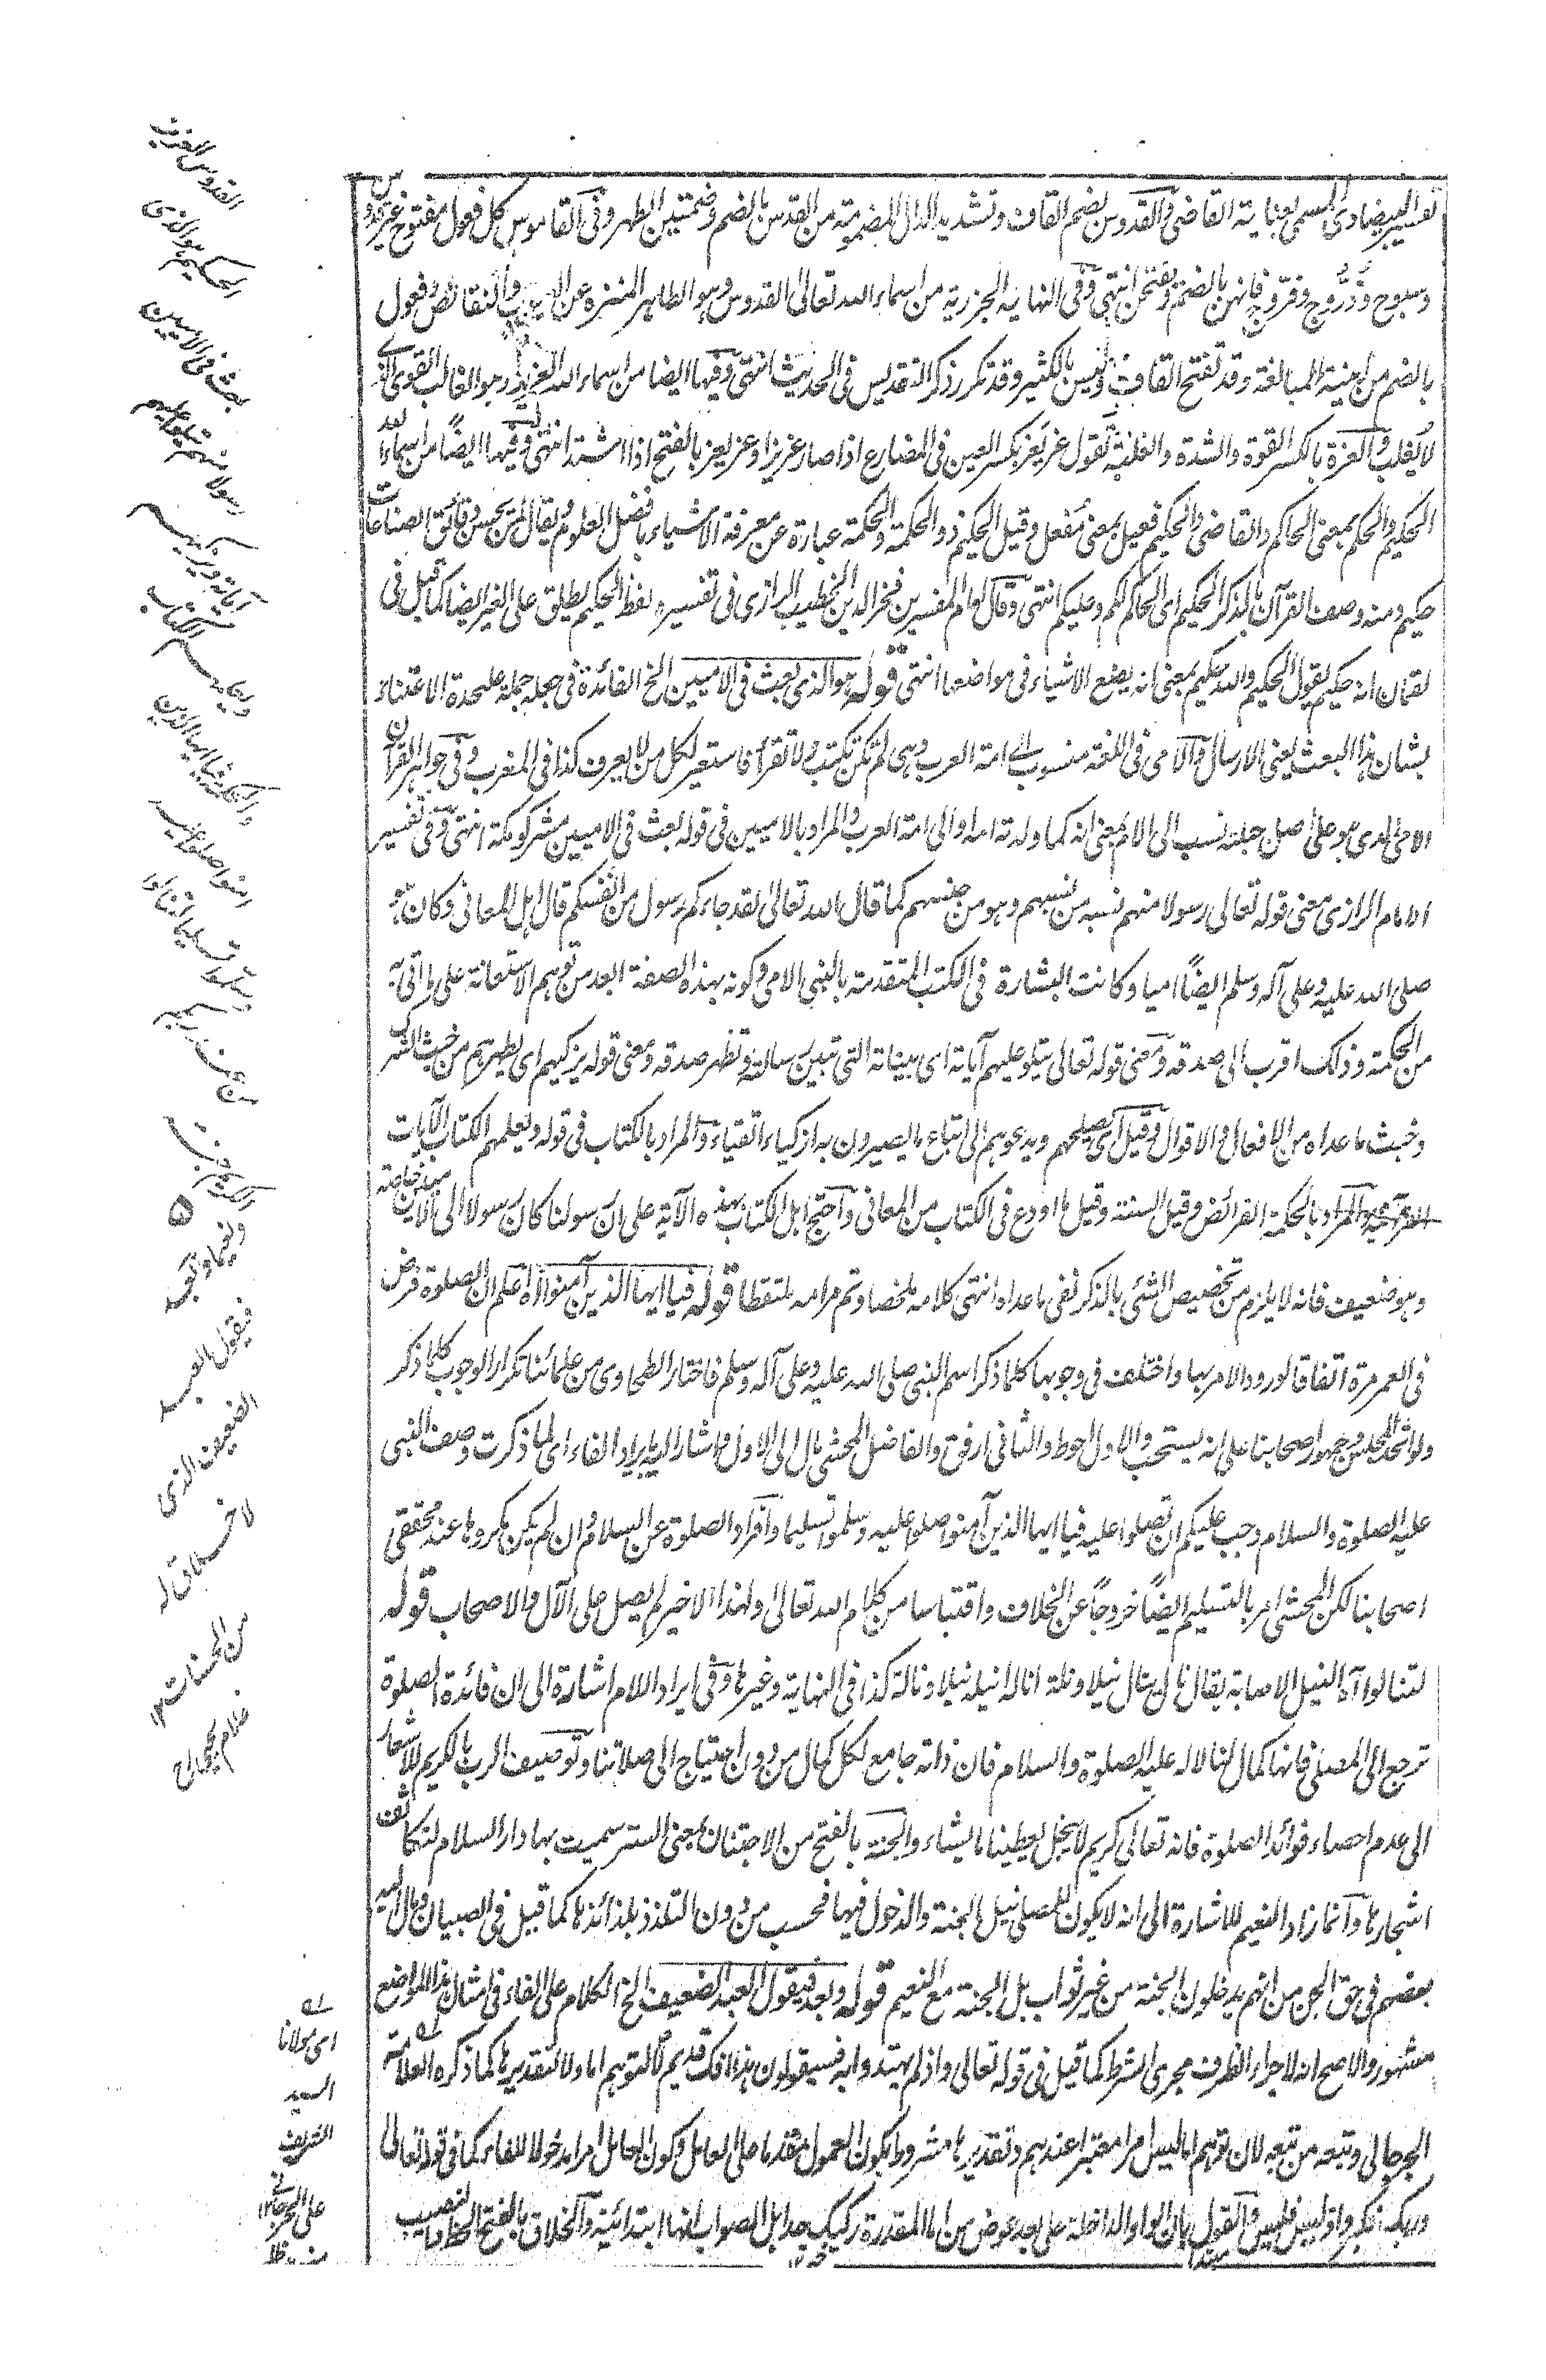 تفسير البيضاوي المسمى بعناية القاضي والقدوس بضم القاف وتشديد الدال المضمومة من القدس بالضم وضمتين الطهر وفي القاموس كل فعول مفتوح غير قدوس
وسبوح وذروح وفروج فانهن بالضم وبفتحن انتهى وفي النهاية الجزرية من اسماء الله تعالى القدوس وهو الطاهر المنزه عن العيوب والنقائص وفعول
بالضم من ابنية المبالغة وقد تفتح القاف وليس بالكثير وقد تكرر ذكر التقديس في الحديث انتهى وفيها ايضا من اسماء الله العزيز وهو الغالب القوي الذي
لا يغلب والعزة بالكسر القوة والشدة والغلبة تقول عز يعز بكسر العين في المضارع اذا صار عزيزا وعز يعز بالفتح اذا اشتد انتهى وفيها ايضاً من اسماء الله
الحكيم والحكم بمعنى الحاكم والقاضي والحكيم فعيل بمعنى مفعل وقيل الحكيم ذو الحكمة والحكمة عبارة عن معرفة الاشياء بافضل العلوم ويقال لمن يحسن دقائق الصناعات
حكيم ومنه وصف القرآن بالذكر الحكيم اى الحاكم لكم وعليكم انتهى وقال امام المفسرين فخر الدين الخطيب الرازى في تفسيره لفظ الحكيم يطلق على الغير ايضا كما قيل في
لقمان انه حكيم يقول الحكيم والله حكيم بمعنى انه يضع الاشياء في مواضعها انتهى قوله هو الذى بعث في الاميين الخ الفائدة في جعله جملة عليحدة الاعتناء
بشان هذا البعث يعنى الارسال والامى في اللغة منسوب الى امة العرب وهى لم تكن تكتب ولا تقرأ فاستعير لكل من لا يعرف كذا في المغرب وفي جواهر القرآن
الامى الذى هو على اصل جبلته نسب الى الام بمعنى انه كما ولدته امه او الى امة العرب والمراد بالاميين في قوله بعث في الاميين مشركو مكة انتهى وفي تفسير
الامام الرازى معنى قوله تعالى رسولا منهم نسبه من نسبهم وهو من جنسهم كما قال الله تعالى لقد جاءكم رسول من انفسكم قال اهل المعانى وكان هو
صلى الله عليه وعلى آله وسلم ايضاً اميا وكانت البشارة في الكتب المتقدمة بالنبى الامى وكونه بهذه الصفة ابعد من توهم الاستعانة على ما اتى به
من الحكمة وذلك اقرب الى صدقه ومعنى قوله تعالى يتلو عليهم آياته اى بيناته التى تبين رسالته وتظهر صدقه ومعنى قوله يزكيهم اى يطهرهم من خبث الشرك
وخبث ما عداه من الافعال والاقوال وقيل اى يصلحهم ويدعوهم الى اتباع ما يصيرون به ازكياء اتقياء والمراد بالكتاب في قوله ويعلمهم الكتاب الآيات
القرآنية والمراد بالحكمة الفرائض وقيل السنة وقيل ما اودع في الكتاب من المعانى واحتج اهل الكتاب بهذه الآية على ان رسولنا كان رسولا الى الاميين خاصة
وهو ضعيف فانه لا يلزم من تخصيص الشئ بالذكر نفى ما عداه انتهى كلامه ملخصا وتم مرامه ملتقطا قوله فيا ايها الذين آمنوا آه اعلم ان الصلوة فرض
في العمر مرة اتفاقا لورود الامر بها واختلف في وجوبها كلما ذكر اسم النبى صلى الله عليه وعلى آله وسلم فاختار الطحاوى من علمائنا تكرار الوجوب كلما ذكر
ولو اتحد المجلس وجمهور اصحابنا على انه يستحب والاول احوط والثانى ارفق والفاضل المحشى مال الى الاول واشار اليه بايراد الفاء اى لما ذكرت وصف النبى
عليه الصلوة والسلام وجب عليكم ان تصلوا عليه فيا ايها الذين آمنوا صلوا عليه وسلموا تسليما وافراد الصلوة عن السلام وان لم يكن مكروها عند محققى
اصحابنا لكن المحشى امر بالتسليم ايضاً خروجاً عن الخلاف واقتباسا من كلام الله تعالى ولهذا الاخير لم يصل على الآل والاصحاب قوله
لتنالوا آه النيل الاصابة يقال نال ينال نيلا ونلة انا له انيله نيلا ونالة كذا في النهاية وغيرها وفي ايراد اللام اشارة الى ان فائدة الصلوة
ترجع الى المصلى فانها كمال لنا لا له عليه الصلوة والسلام فان ذاته جامع لكل كمال من دون احتياج الى صلاتنا وتوصيف الرب بالكريم للاشعار
الى عدم احصاء فوائد الصلوة فانه تعالى كريم لا يبخل يعطينا ما يشاء والجنة بالفتح من الاجتنان بمعنى الستر سميت بها دار السلام لتكاثف
اشجارها وانما زاد النعيم للاشارة الى انه لا يكون للمصلى نيل الجنة والدخول فيها فحسب من دون التلذذ بلذائذها كما قيل في الصبيان ومال اليه
بعضهم في حق الجن من انهم يدخلون الجنة من غير ثواب بل الجنة مع النعيم قوله وبعد فيقول العبد الضعيف الخ الكلام على الفاء في امثال هذا المواضع
مشهور والاصح انه لاجراء الظرف مجرى الشرط كما قيل في قوله تعالى واذ لم يهتدوا به فسيقولون هذا افك قديم لا لتوهم اما ولا لتقديرها كما ذكره العلامة
الجرجانى وتبعه من تبعه لان توهم اما ليس امرا معتبرا عندهم وتقديرها مشروط بكون المعمول مقدما على العامل وكون العامل امرا مدخولا للفاء كما في قوله تعالى
وربك فكبر واذ ليس فليس والقول بان الواو الداخلة على بعد عوض من اما المقدرة ركيك جدا بل الصواب انها ابتدائية والخلاق بالفتح الحظ والنصيب
القدوس العزيز
الحكيم هو الذى
بعث في الاميين
رسولا منهم يتلو عليهم
آياته ويزكيهم
ويعلمهم الكتاب
والحكمة فيا ايها الذين
آمنوا صلوا عليه
وسلموا تسليما لتنالوا
من ربكم
الكريم جنة
ونعيما وبعد
فيقول العبد
الضعيف الذى
لا خلاق له
من الحسنات
غلام يحيى
اى مولانا
السيد
الشريف
على الجرجانى